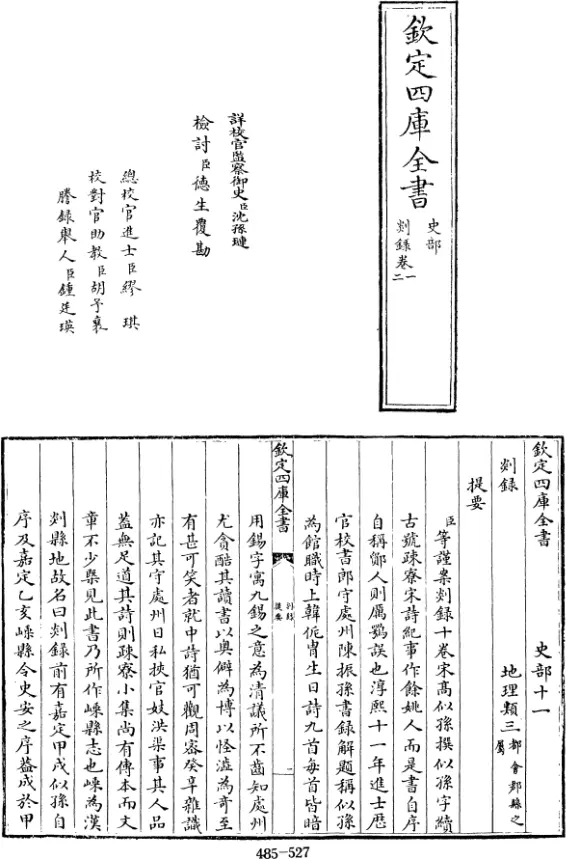 欽定四庫全書
史部
剡錄卷一二
詳校官監察御史臣沈孫璉
檢討臣德生覆勘
總校官進士臣繆琪
校對官助教臣胡予襄
謄錄舉人臣鍾廷瑛
欽定四庫全書
史部十一
剡錄
地理類三都會郡縣之屬
提要
臣等謹案剡録十卷宋髙似孫撰似孫字續
古號疎寮宋詩紀事作餘姚人而是書自序
自稱鄮人則厲鶚誤也淳熙十一年進士歴
官校書郎守處州陳振孫書録解題稱似孫
為館職時上韓侂胄生日詩九首每首皆暗
欽定四庫全書
剡錄
提要
一
用錫字寓九錫之意為清議所不齒知處州
尤貪酷其讀書以奥僻為博以怪澁為奇至
有甚可笑者就中詩猶可觀周宻癸辛雜識
亦記其守處州日私挾官妓洪渠事其人品
葢無足道其詩則疎寮小集尚有傳本而文
章不少槩見此書乃所作嵊縣志也嵊為漢
剡縣地故名曰剡録前有嘉定甲戌似孫自
序及嘉定乙亥嵊縣令史安之序葢成於甲
485-527